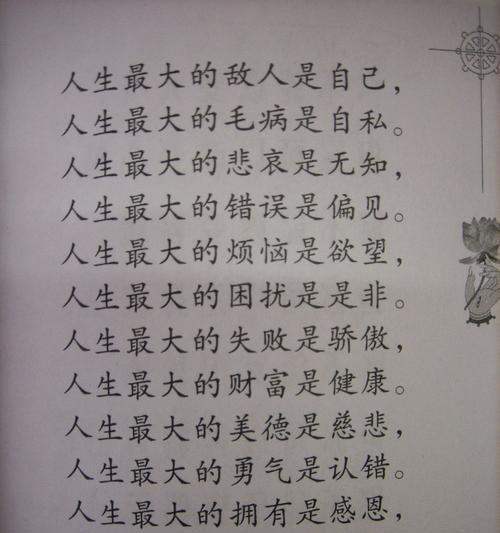 人生最大的敌人是自己，
人生最大的毛病是自私。
人生最大的悲哀是无知，
人生最大的错误是偏见。
人生最大的烦恼是欲望，
人生最大的困扰是是非。
人生最大的失败是骄傲，
人生最大的财富是健康。
人生最大的美德是慈悲，
人生最大的勇气是认错。
人生最大的拥有是感恩，